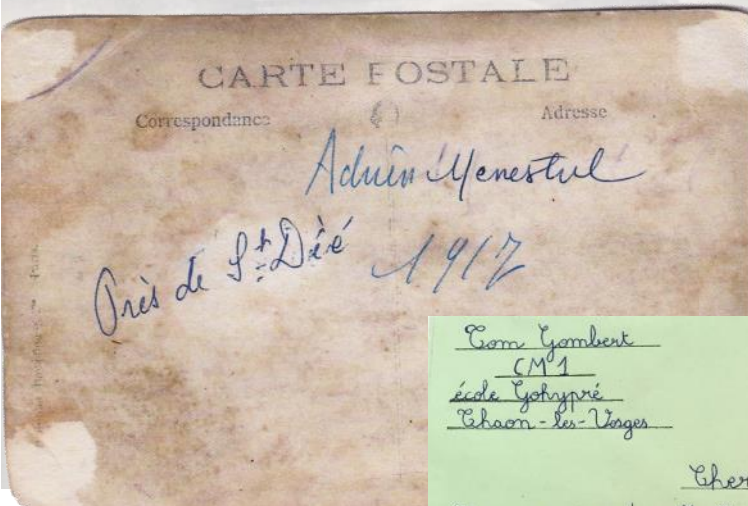 CARTE POSTALE
Correspondance
Adresse
Adrien Menestrel
Près de St Diéé 1917
Tom Gombert
CM1
école Gohypré
Thaon-les-Vosges
Cher